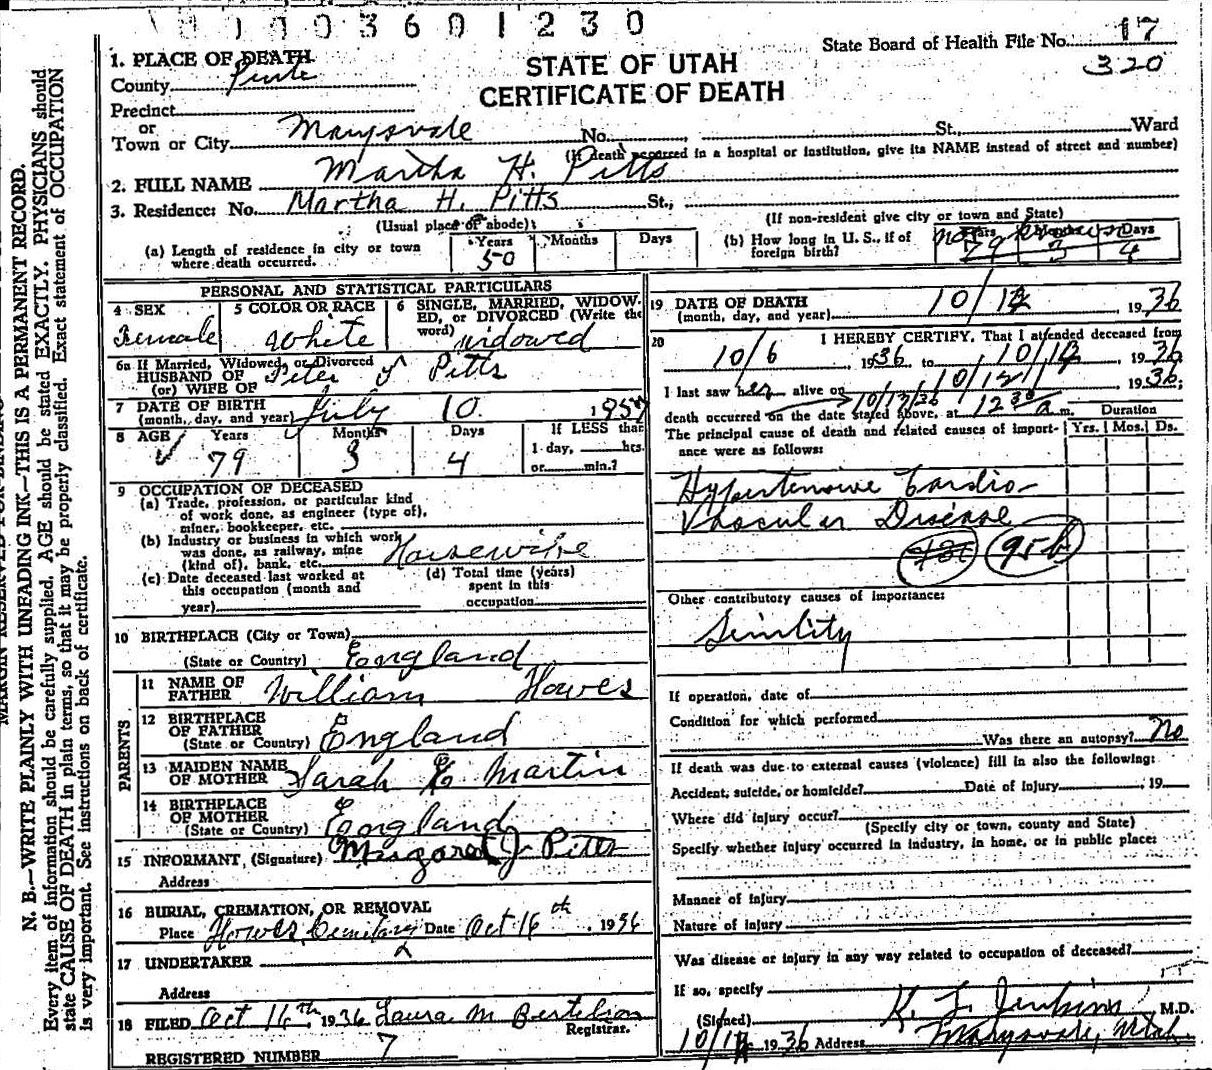 0 3 6 0 1 2 3 0
State Board of Health File No. 17
320
STATE OF UTAH
CERTIFICATE OF DEATH
1. PLACE OF DEATH
County Piute
Precinct
or
Town or City Marysvale No. St., Ward
(If death occurred in a hospital or institution, give its NAME instead of street and number)
2. FULL NAME Martha H. Pitts
3. Residence: No. Martha H. Pitts St.,
(Usual place of abode)
(If non-resident give city or town and State)
(a) Length of residence in city or town where death occurred. Years 50 Months Days
(b) How long in U. S., if of foreign birth? Years Months Days
not known
79 3 4
PERSONAL AND STATISTICAL PARTICULARS
4 SEX Female
5 COLOR OR RACE White
6 SINGLE, MARRIED, WIDOWED, or DIVORCED (Write the word) widowed
6a If Married, Widowed, or Divorced
HUSBAND OF
(or) WIFE OF Peter Y Pitts
7 DATE OF BIRTH
(month, day, and year) July 10 1857
8 AGE Years 79 Months 3 Days 4
If LESS than
1 day, hrs.
or min.?
9 OCCUPATION OF DECEASED
(a) Trade, profession, or particular kind
of work done, as engineer (type of),
miner, bookkeeper, etc.
(b) Industry or business in which work
was done, as railway, mine
(kind of), bank, etc. Housewife
(c) Date deceased last worked at
this occupation (month and
year)
(d) Total time (years)
spent in this
occupation
10 BIRTHPLACE (City or Town)
(State or Country) England
PARENTS
11 NAME OF
FATHER William Howes
12 BIRTHPLACE
OF FATHER
(State or Country) England
13 MAIDEN NAME
OF MOTHER Sarah Martin
14 BIRTHPLACE
OF MOTHER
(State or Country) England
15 INFORMANT, (Signature) Margaret J. Pitts
Address
16 BURIAL, CREMATION, OR REMOVAL
Place Howes Cemitary Date Oct 16th 1936
17 UNDERTAKER
Address
18 FILED Oct 16th, 1936 Laura M Bertelson
Registrar.
REGISTERED NUMBER 7
19 DATE OF DEATH
(month, day, and year) 10/ 1936
20 I HEREBY CERTIFY, That I attended deceased from
10/6 1936 to 10/ 1936
I last saw her alive on 10/12/ 1936;
10/13/36
death occurred on the date stated above, at 12 30 a m.
The principal cause of death and related causes of importance were as follows:
Duration
Yrs. Mos. Ds.
Hypertensive Cardio-
Vascular Disease
95b
Other contributory causes of importance:
Seinlity
If operation, date of
Condition for which performed
Was there an autopsy? No
If death was due to external causes (violence) fill in also the following:
Accident, suicide, or homicide? Date of Injury , 19
Where did injury occur?
(Specify city or town, county and State)
Specify whether injury occurred in industry, in home, or in public place:
Manner of Injury
Nature of Injury
Was disease or injury in any way related to occupation of deceased?
If so, specify
(Signed) K. L. Jenkins M.D.
10/ 1936 Address Marysvale, Utah
MARGIN RESERVED FOR BINDING
N. B.—WRITE PLAINLY WITH UNFADING INK—THIS IS A PERMANENT RECORD.
Every item of information should be carefully supplied. AGE should be stated EXACTLY. PHYSICIANS should
state CAUSE OF DEATH in plain terms, so that it may be properly classified. Exact statement of OCCUPATION
is very important. See instructions on back of certificate.